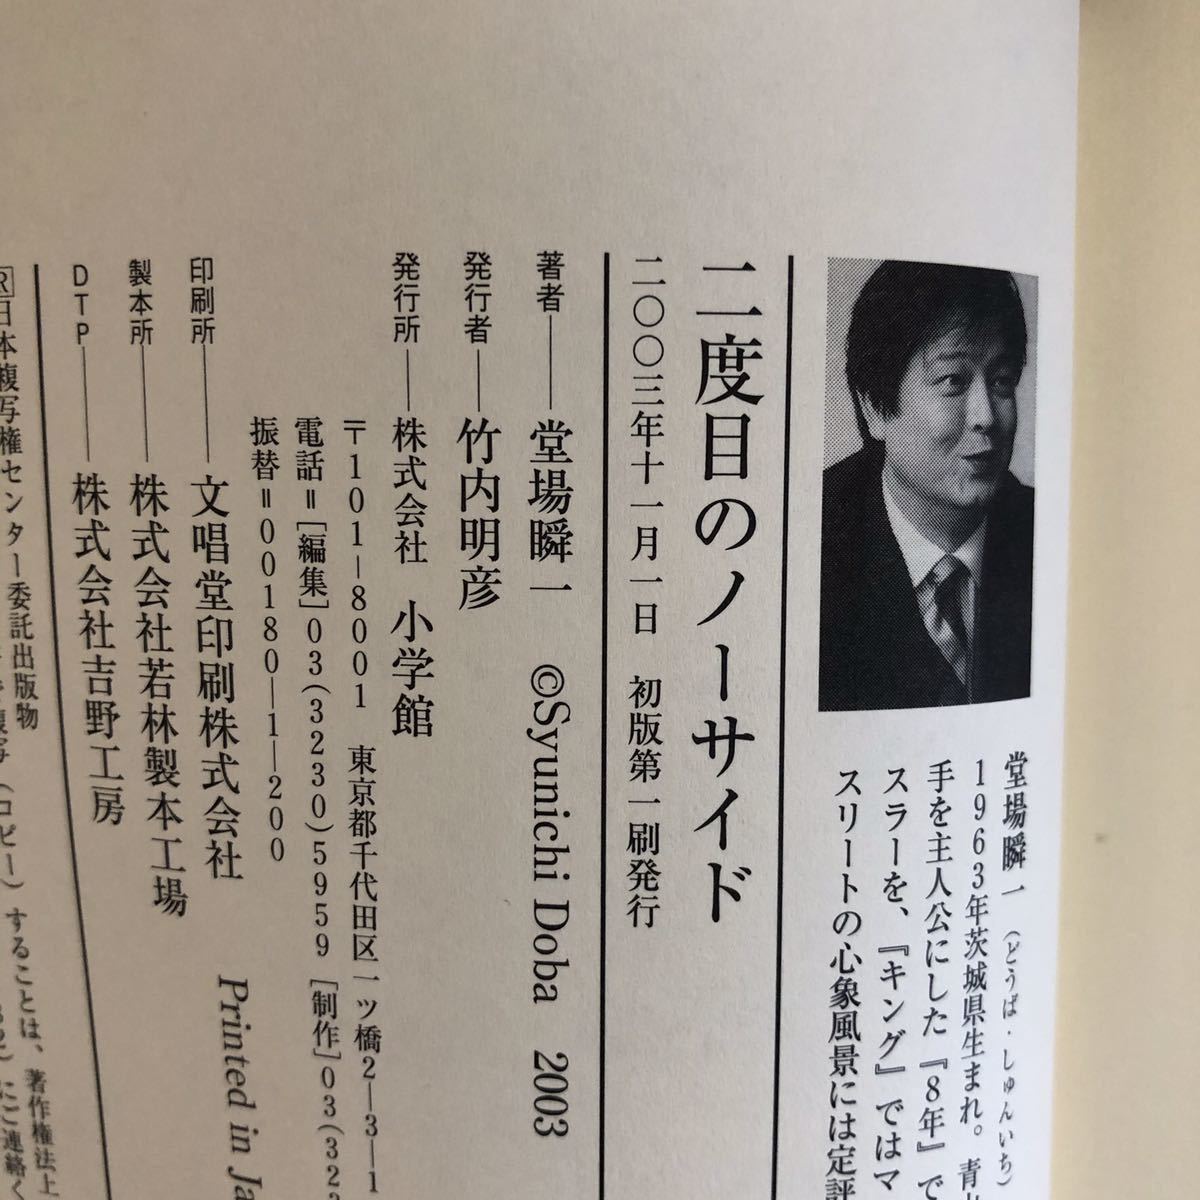 堂場瞬一（どうば・しゅんいち）
1963年茨城県生まれ。青
手を主人公にした『8年』で
スラーを、『キング』ではマ
スリートの心象風景には定評
二度目のノーサイド
二〇〇三年十一月一日　初版第一刷発行
著者——堂場瞬一　©Syunichi Doba　2003
発行者——竹内明彦
発行所——株式会社　小学館
〒101-8001　東京都千代田区一ツ橋2-3-1
電話＝[編集]03(3230)5959　[制作]03(323
振替＝00180-1-200
印刷所——文唱堂印刷株式会社　Printed in Ja
製本所——株式会社若林製本工場
DTP——株式会社吉野工房
R日本複写権センター委託出版物
（コピー）することは、著作権法上
にご連絡く